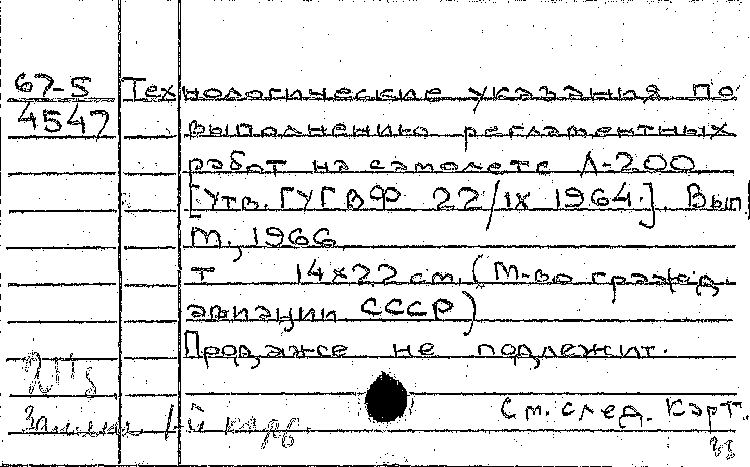 67-5 Технологические указания по
4547 выполнению регламентных
работ на самолете Л-200
[Утв. ГУГВФ 22/IX 1964.]. Вып
М., 1966
т 14х22 см. (М-во гражд.
авиации СССР)
Продаже не подлежит.
См. след. карт.
33